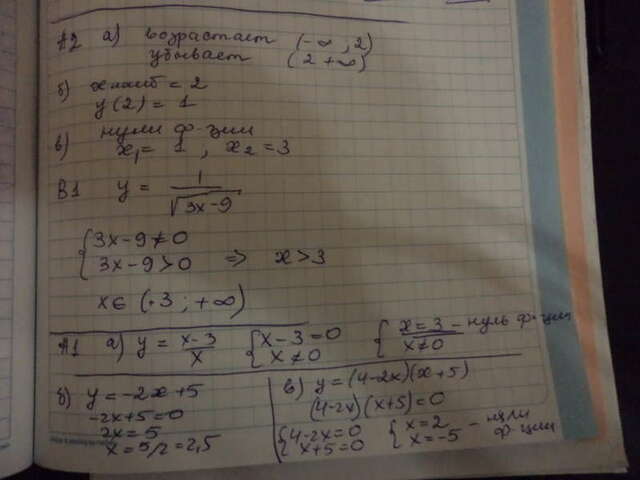 A2 а) возрастает (-∞, 2)
убывает (2 +∞)
б) x наиб = 2
y(2) = 1
в) нули ф-ции
x₁ = 1, x₂ = 3
В1 y = 1/√(3x-9)
{3x-9≠0
{3x-9>0 => x>3
x∈ (·3 ; +∞)
A1 а) y = (x-3)/x {x-3=0 {x=3 - нуль ф-ции
{x≠0 {x≠0
б) y = -2x+5
-2x+5=0
2x=5
x=5/2=2,5
в) y=(4-2x)(x+5)
(4-2x)(x+5)=0
{4-2x=0 {x=2 - нули
{x+5=0 {x=-5 ф-ции